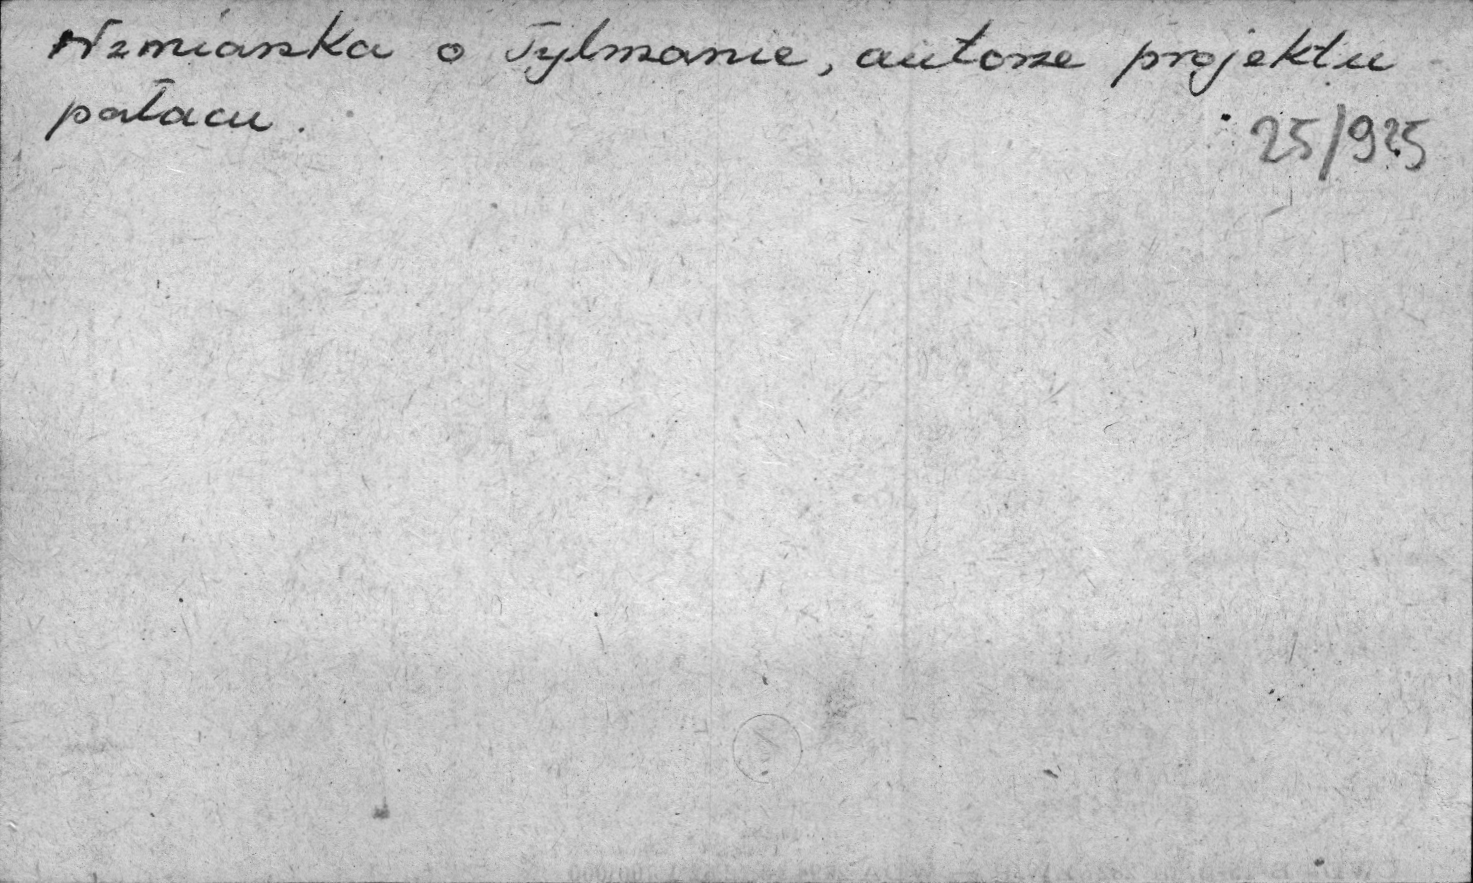 Wzmianka o Tylmanie, autorze projektu
pałacu.
25/925